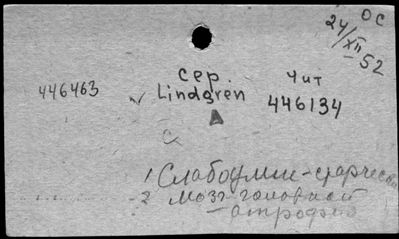 ОС
24/XII 52
446463
✓ Сер. Lindgren
Чит 446134
А
1 Слабоумие - старческ
2 Мозг головной
- атрофия